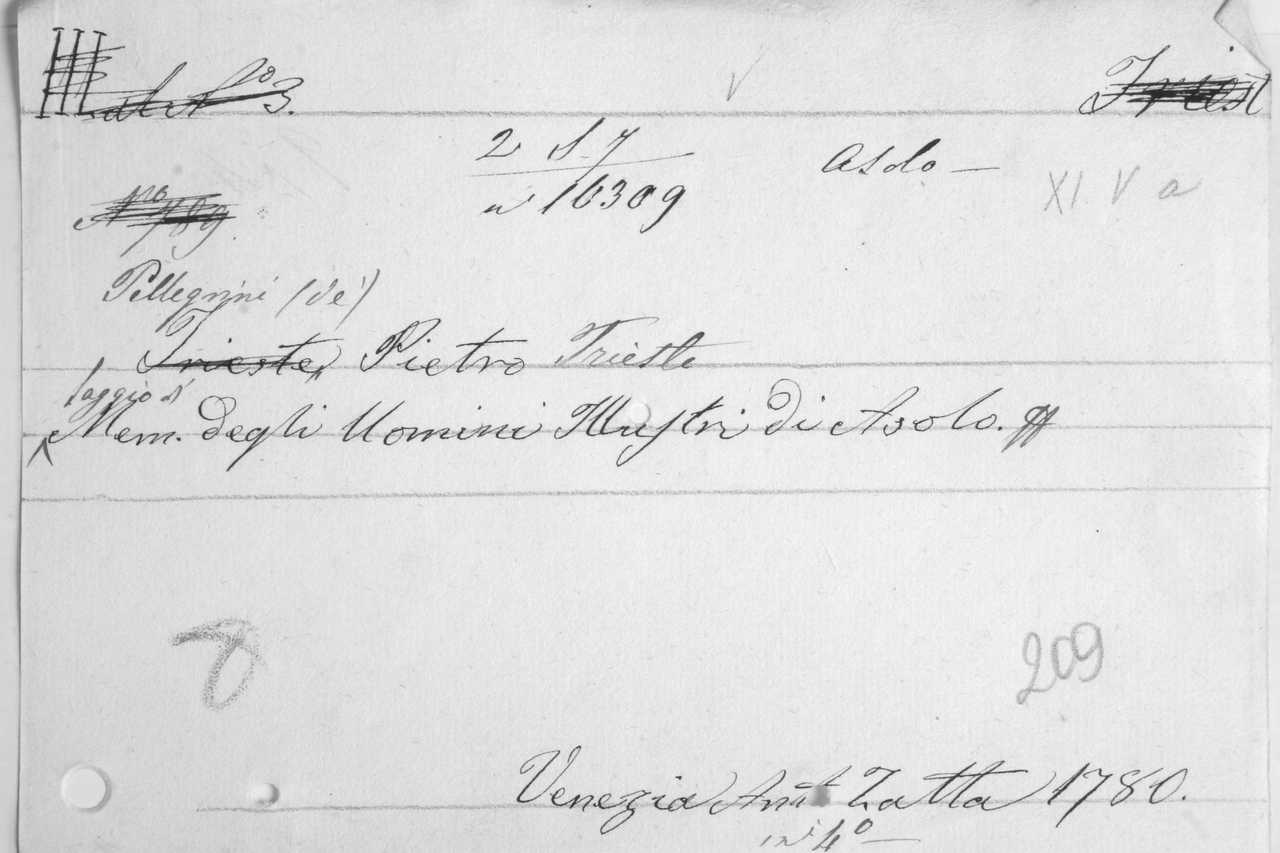 III al Nº 3. Triest
2 S. 7 Asolo —
n 16309 XI. V a
Nº 789
Pellegrini (de')
Trieste, Pietro Trieste
Saggio di
Mem. degli Uomini Illustri di Asolo.
8
209
Venezia Ant Zatta 1780.
in 4º —